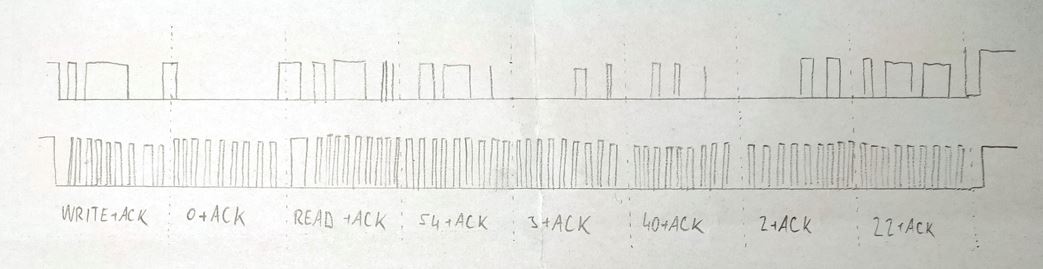 WRITE+ACK 0+ACK READ +ACK 54+ACK 3+ACK 40+ACK 2+ACK 22+ACK